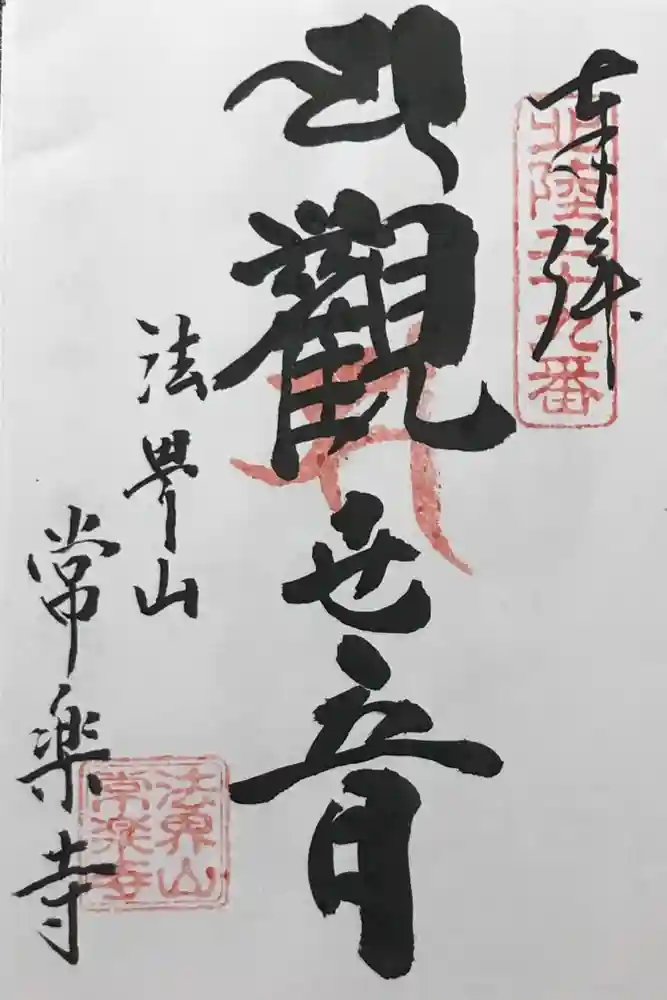 奉拝
北陸二十九番
観世音
法界山
常楽寺
法界山
常楽寺